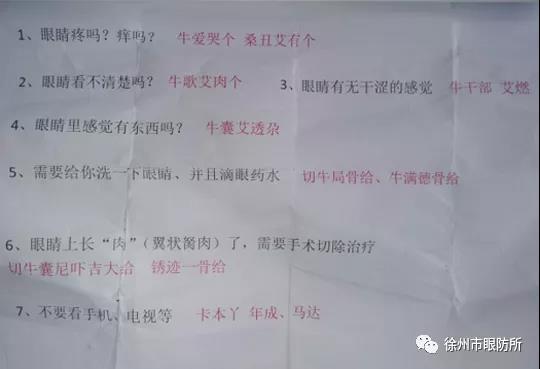 1、眼睛疼吗？痒吗？ 牛爱哭个 桑丑艾有个
2、眼睛看不清楚吗？ 牛歌艾肉个 3、眼睛有无干涩的感觉 牛干部 艾燃
4、眼睛里感觉有东西吗？ 牛囊艾透尕
5、需要给你洗一下眼睛、并且滴眼药水 切牛局骨给、牛满德骨给
6、眼睛上长“肉”（翼状胬肉）了，需要手术切除治疗
切牛囊尼吓吉大给 锈迹一骨给
7、不要看手机、电视等 卡本丫 年成、马达
徐州市眼防所